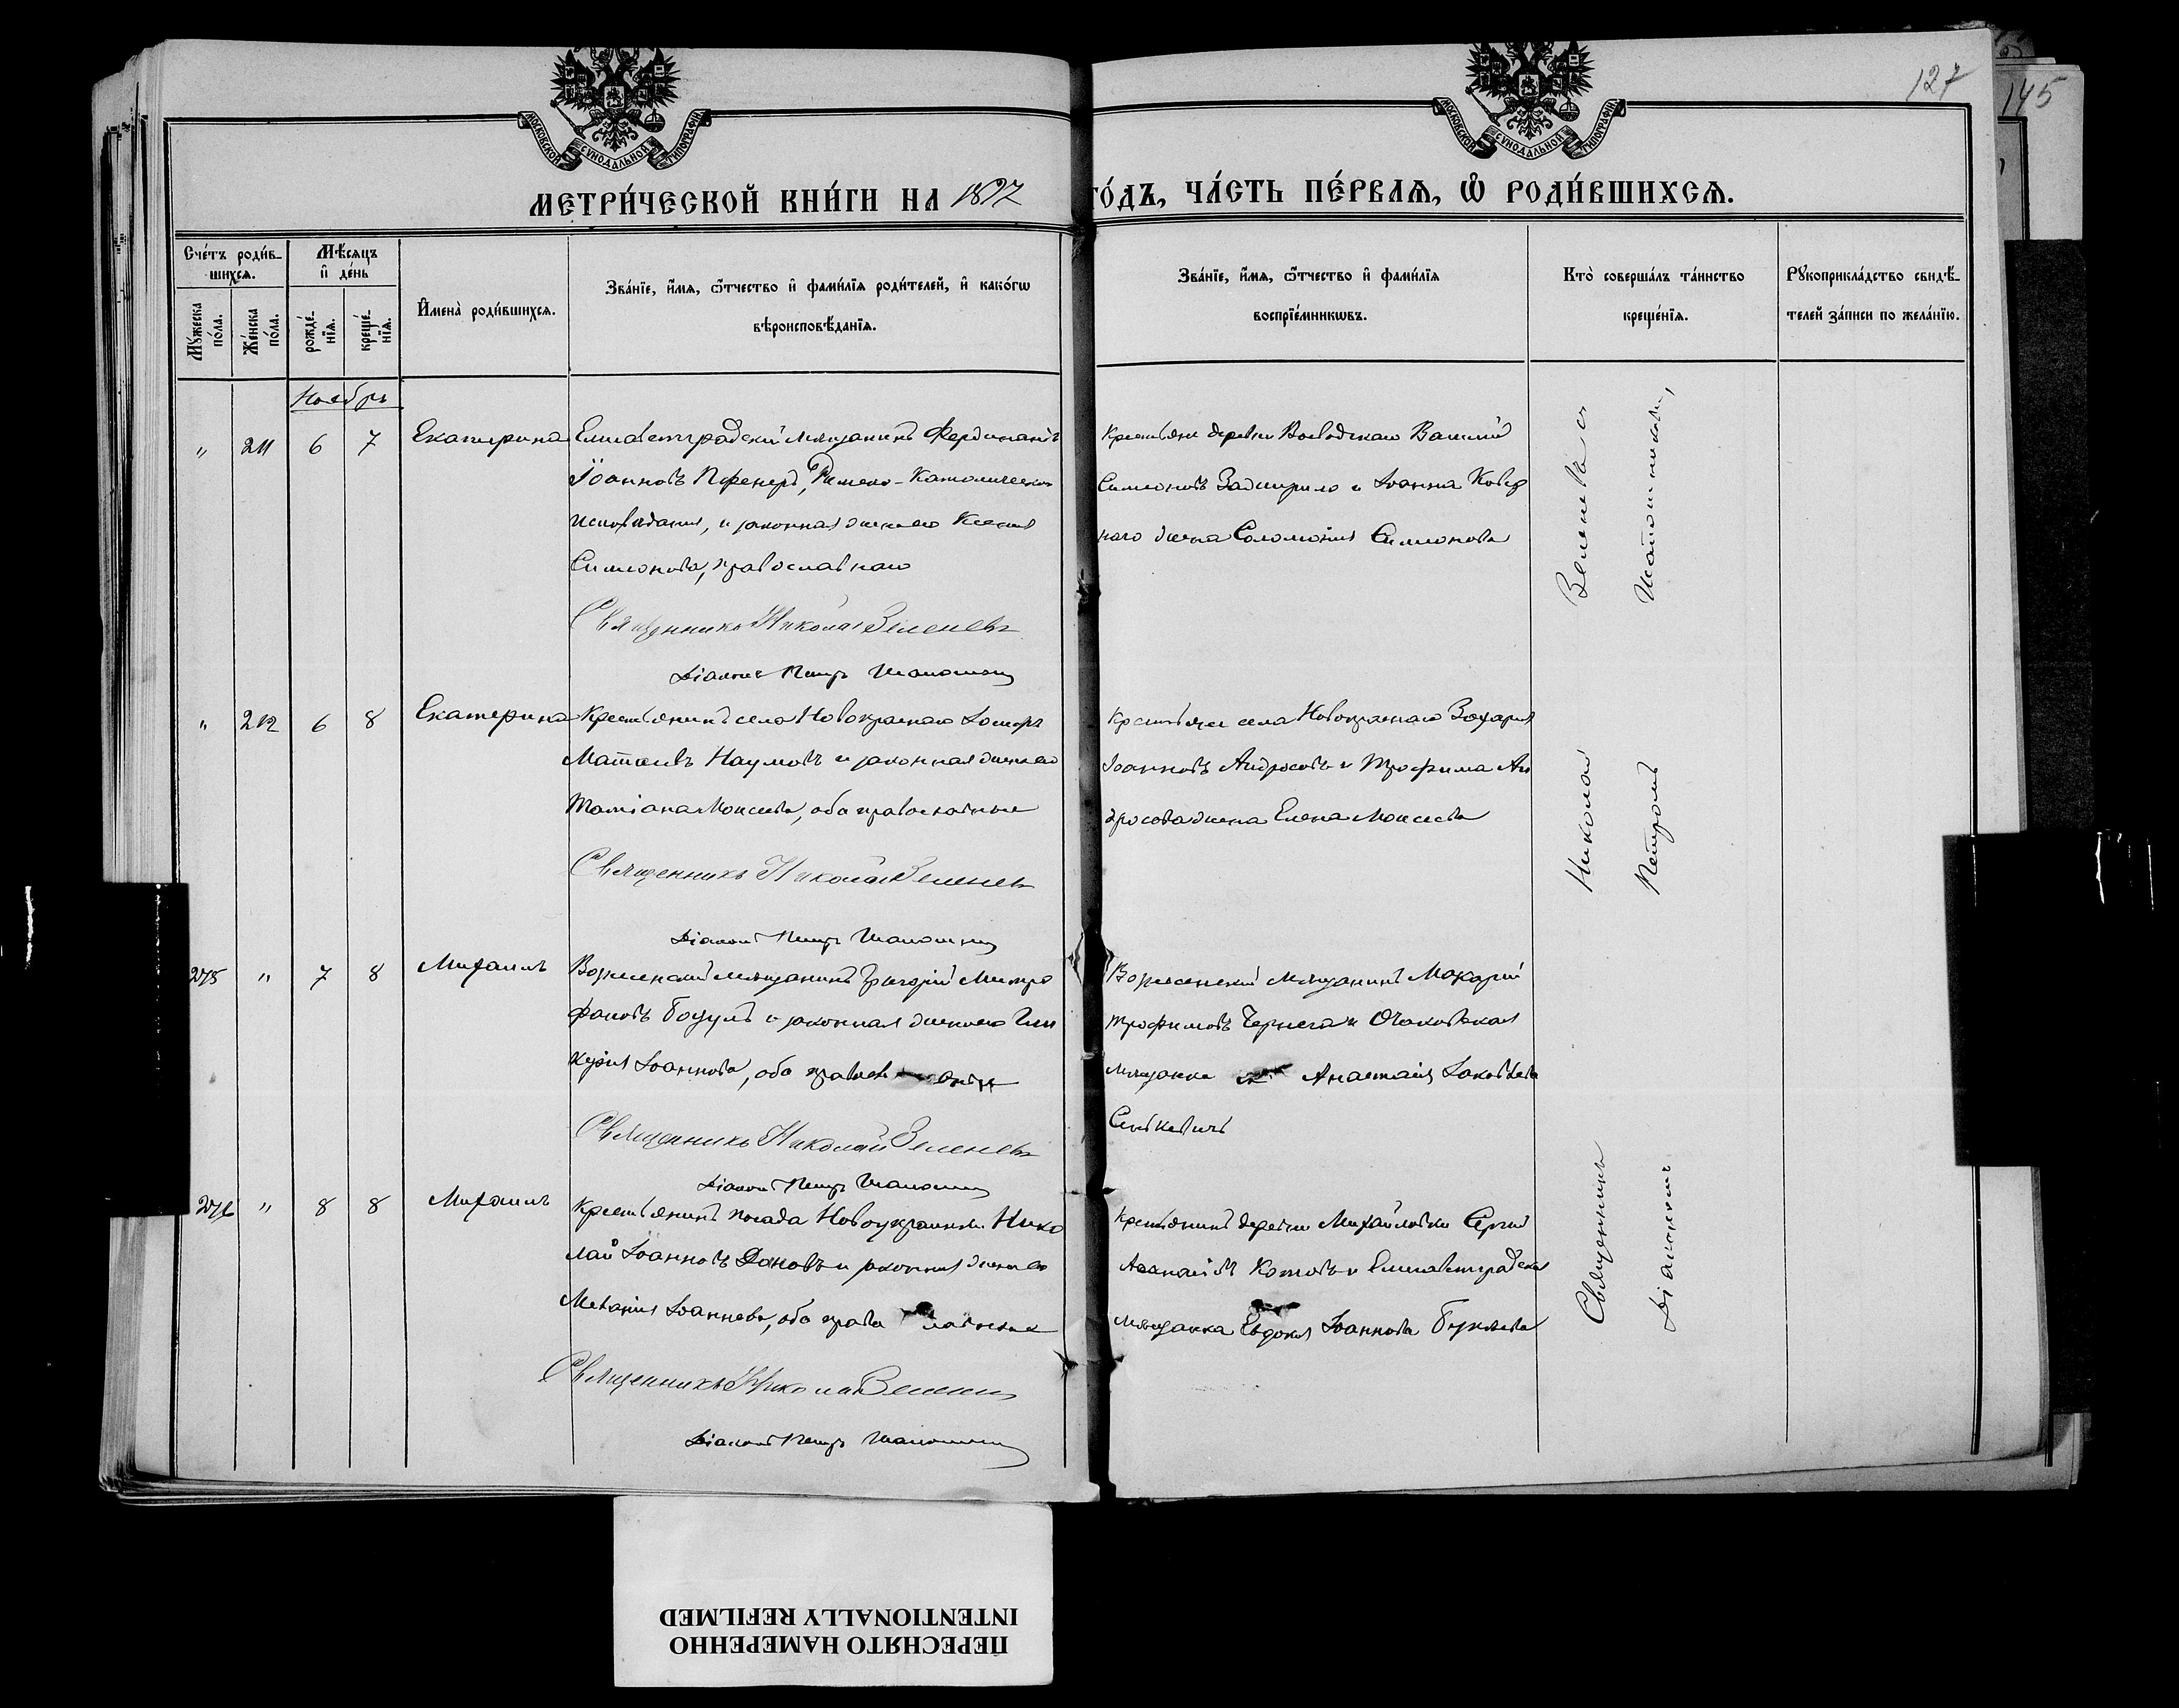 127
145
МОСКОВСКОЙ СѴНОДАЛЬНОЙ ТИПОГРАФІИ
МОСКОВСКОЙ СѴНОДАЛЬНОЙ ТИПОГРАФІИ
МЕТРИ́ЧЕСКОЙ КНИ́ГИ НА 1897 ГО́ДЪ, ЧА́СТЬ ПЕ́РВАѦ, Ѡ РОДИ́ВШИХСѦ.
Сче́тъ роди́в-
шихсѧ.
Мѣ́сяцъ
и҆ де́нь
Мꙋ́жеска по́ла.
Же́нска по́ла.
рожде́нїѧ.
креще́нїѧ.
И҆мена̀ роди́вшихсѧ.
Зва́нїе, и҆́мѧ, ѻ҆́тчество и҆ фами́лїѧ роди́телей, и҆ како́гѡ
вѣроисповѣ́данїѧ.
Зва́нїе, и҆́мѧ, ѻ҆́тчество и҆ фами́лїѧ
воспрїе́мникѡвъ.
Кто̀ соверша́лъ та́инство
креще́нїѧ.
Рꙋкоприкла́дство свидѣ́-
телей за́писи по жела́нїю.
Ноябрь
" 211 6 7 Екатерина
Елисаветградскій мѣщанинъ Фердинандъ
Іоанновъ Римско-Католическаго
исповѣданія, и законная жена его Ксенія
Симеонова, православнаго
Священникъ Николай Зеленевъ
Діаконъ Петръ
Крестьяне деревни Василій
Симеоновъ и Іоанна
жена Соломонія Симеонова
" 212 6 8 Екатерина
Крестьянинъ села Новокраснаго
Матѳеевъ Наумовъ и законная жена его
Татіана Моисеева, оба православные
Священникъ Николай Зеленевъ
Діаконъ Петръ
Крестьяне села Новокраснаго Захарія
Іоанновъ Андросовъ и Трофима Ан
дросова жена Елена Моисеева
275 " 7 8 Михаилъ
Вознесенскій мѣщанинъ Григорій Митро
фановъ и законная жена его Гли
керія Іоаннова, оба
Священникъ Николай Зеленевъ
Діаконъ Петръ
Вознесенскій мѣщанинъ Макарій
Трофимовъ Чернега и Очаковская
мѣщанка Анастасія Іаковлева
Сенкевичъ
276 " 8 8 Михаилъ
Крестьянинъ посада Новоукраинки Нико
лай Іоанновъ и законная жена его
Меланія Іоаннова, оба православные
Священникъ Николай Зеленевъ
Діаконъ Петръ
Крестьянинъ деревни Михайловки Сергій
Аѳанасіевъ Котовъ и Елисаветградская
мѣщанка Евдокія Іоаннова
Священникъ Николай Зеленевъ
Діакономъ Петромъ
ПЕРЕСНЯТО НАМЕРЕННО
INTENTIONALLY REFILMED